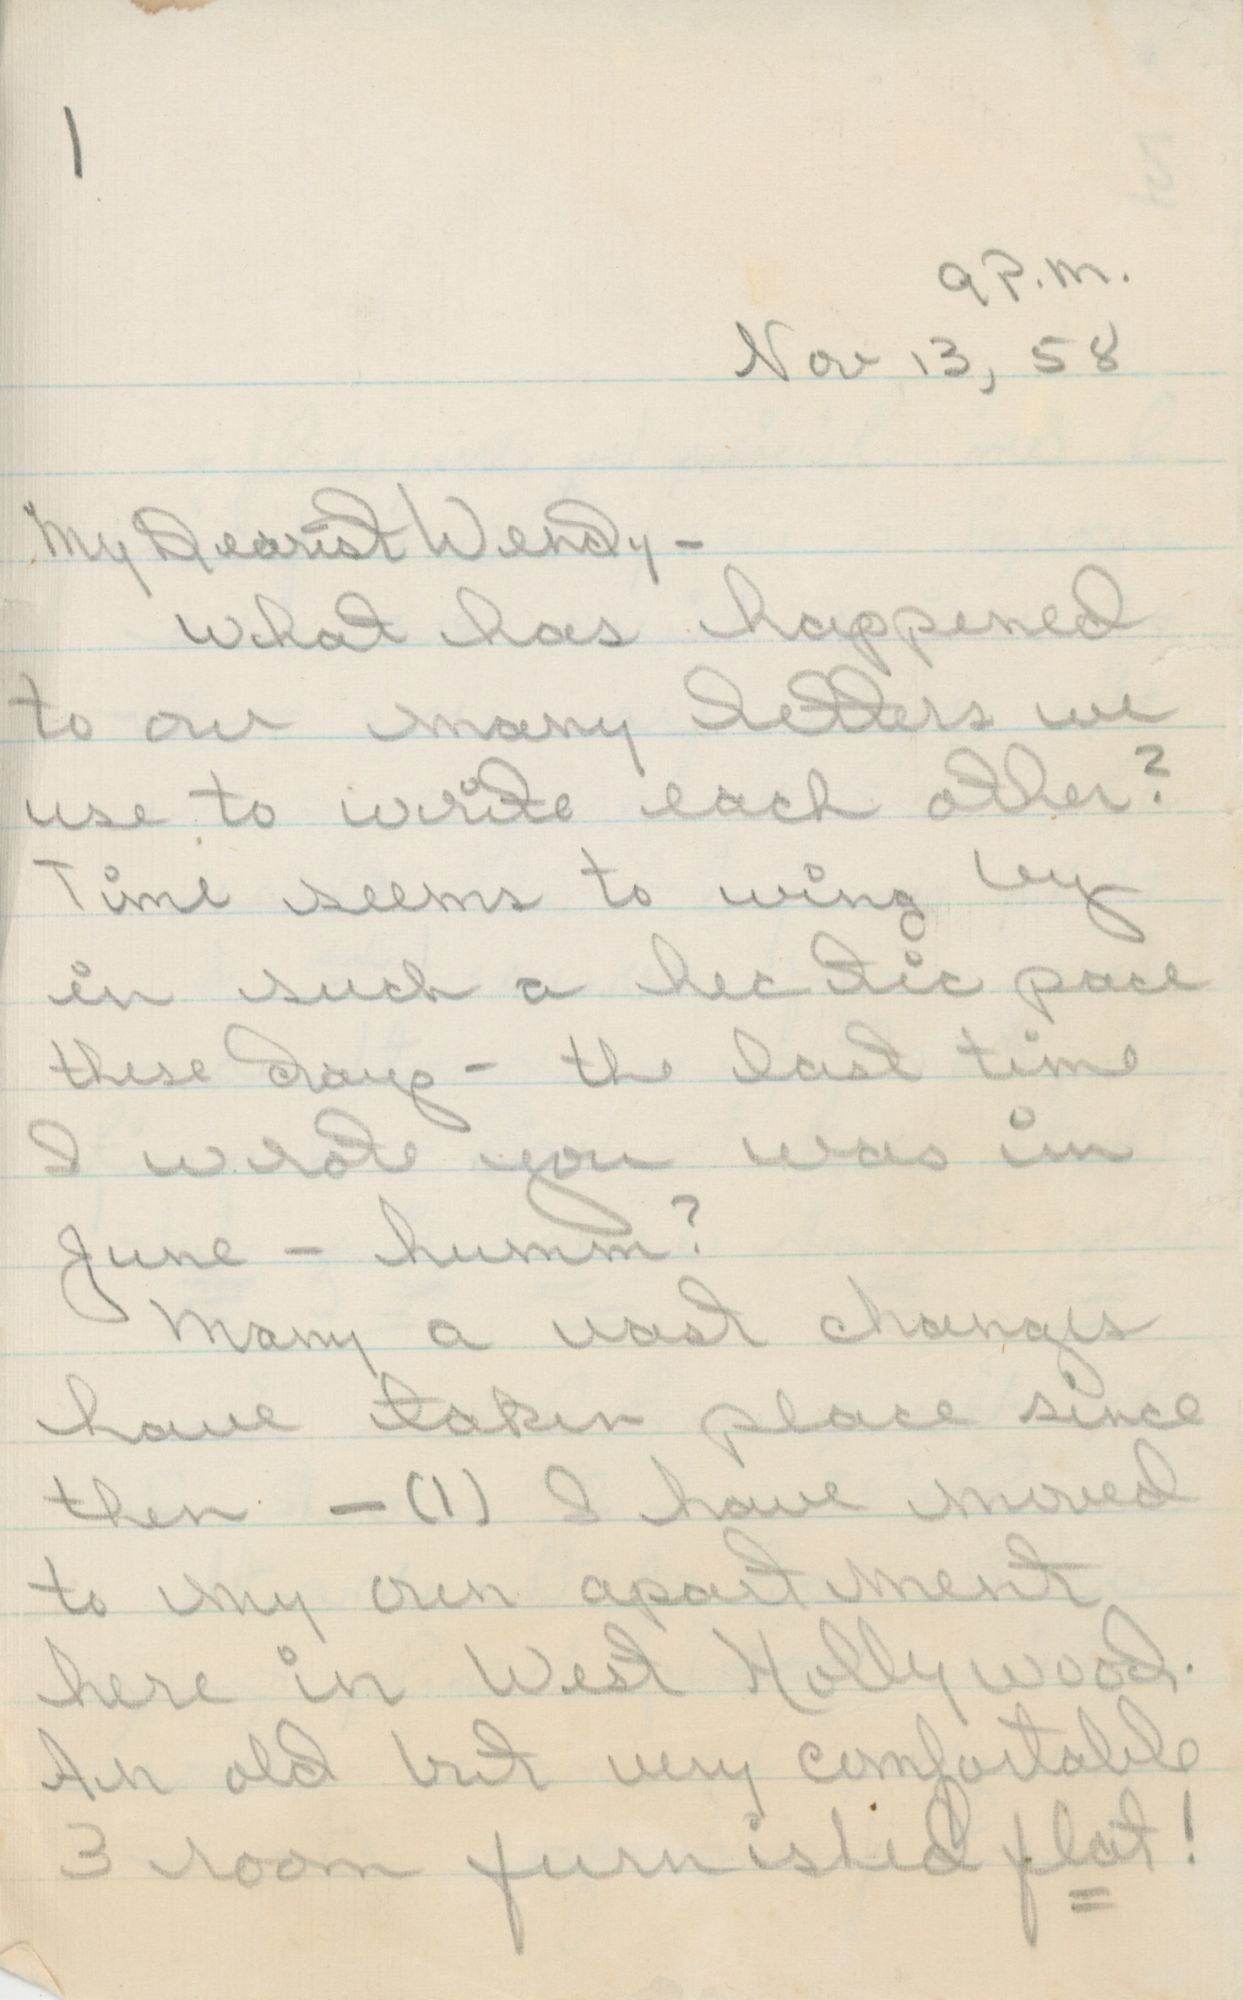 1
9 P.M.
Nov 13, 58
My Dearest Wendy-
What has happened
to our many letters we
use to write each other?
Time seems to wing by
in such a hectic pace
these days - the last time
I wrote you was in
June - humm?
Many a vast changes
have taken place since
then - (1) I have moved
to my own apartment
here in West Hollywood.
An old but very comfortable
3 room furnished flat!